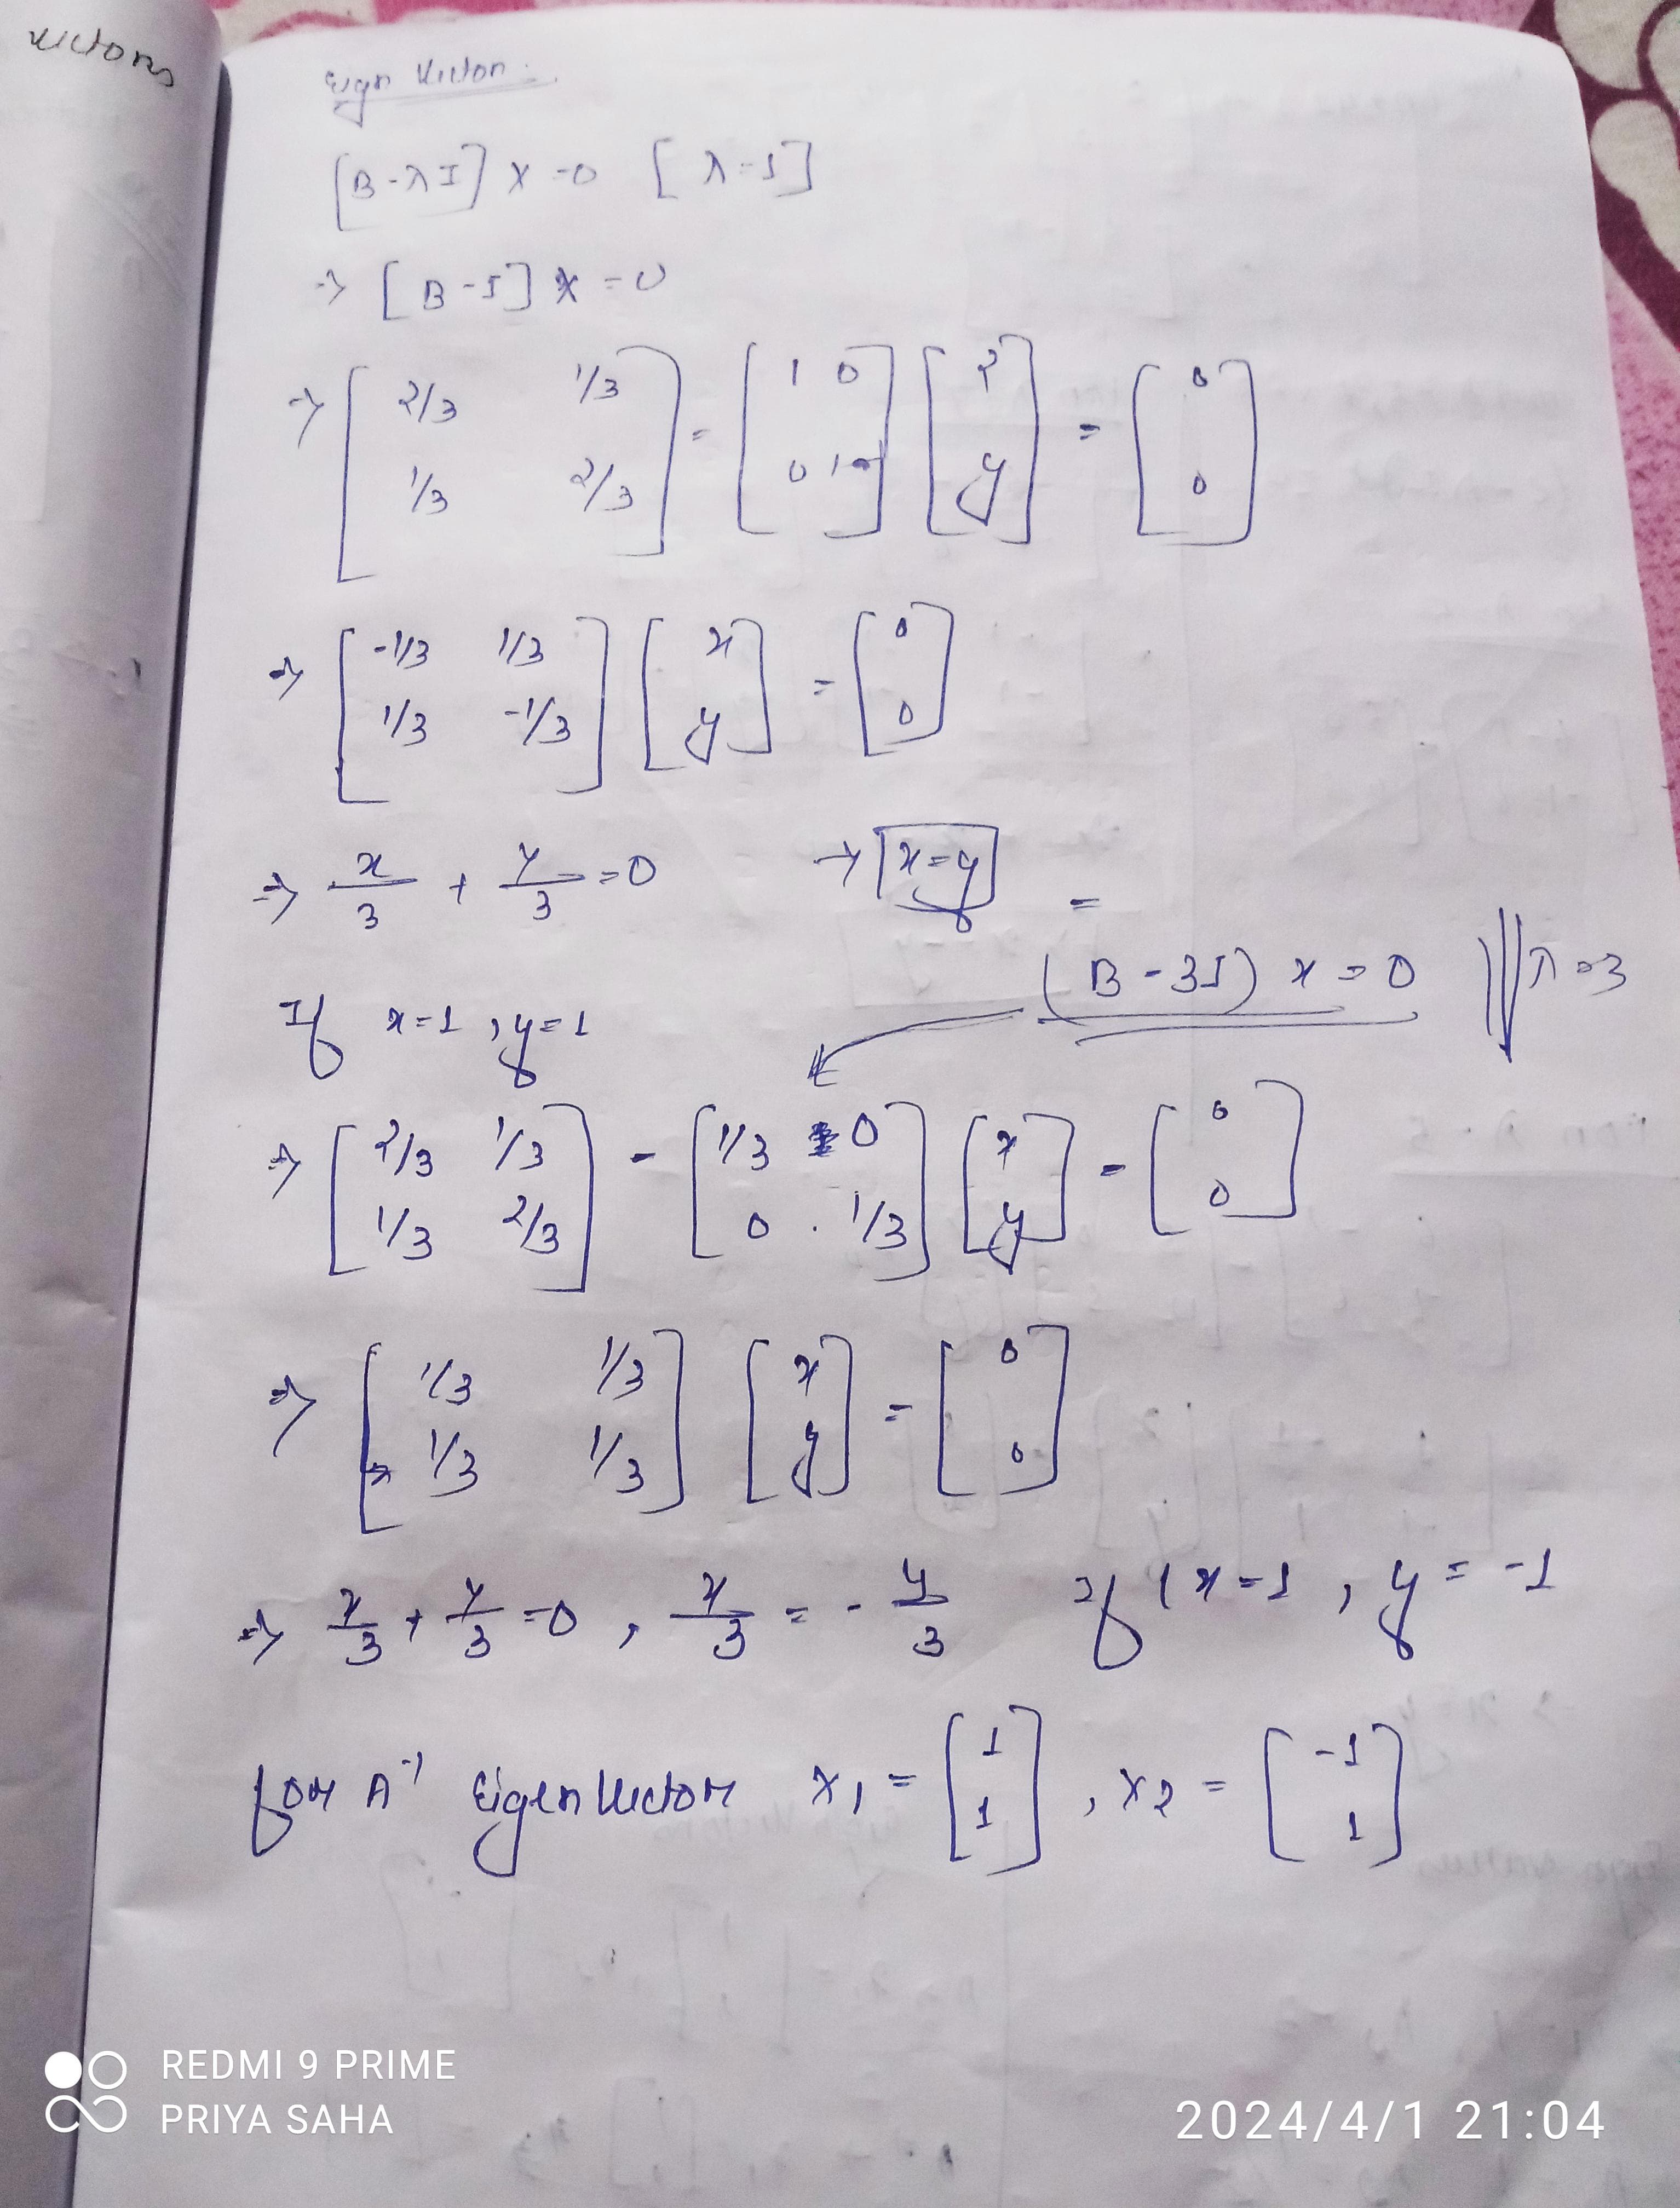 vectors
Eign Vector :-
[B-λI] X=0 [λ=1]
⇒ [B-I] X=0
⇒ [2/3 1/3 1/3 2/3] - [1 0 0 1] [x y] = [0 0]
⇒ [-1/3 1/3 1/3 -1/3] [x y] = [0 0]
⇒ x/3 + y/3 =0 → x=y =
(B-3I) x=0 λ=3
If x=1, y=1
⇒ [2/3 1/3 1/3 2/3] - [1/3 0 0 1/3] [x y] = [0 0]
⇒ [1/3 1/3 1/3 1/3] [x y] = [0 0]
⇒ x/3 + y/3 =0, x/3 = - y/3 If x=1, y= -1
for A⁻¹ Eigen Vector x₁ = [1 1], x₂ = [-1 1]
REDMI 9 PRIME
PRIYA SAHA
2024/4/1 21:04